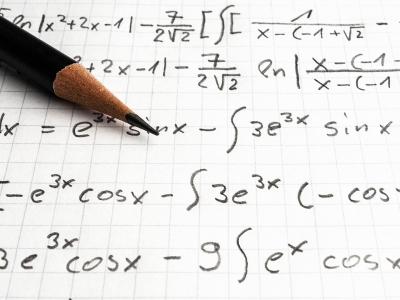 ln |x²+2x-1| - 7/2√2 [∫[ 1/x-(-1+√2) -
²+2x-1| - 7/2√2 ln | x-(-1-/x-(-1
x = e³ˣ sinx - ∫ 3e³ˣ sinx
-e³ˣ cosx - ∫ 3e³ˣ (-cos
3e³ˣ cosx - 9 ∫ eˣ cosx